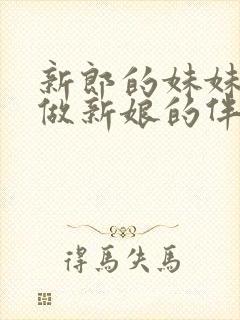 新郎的妹妹
做新娘的伴
得馬失馬